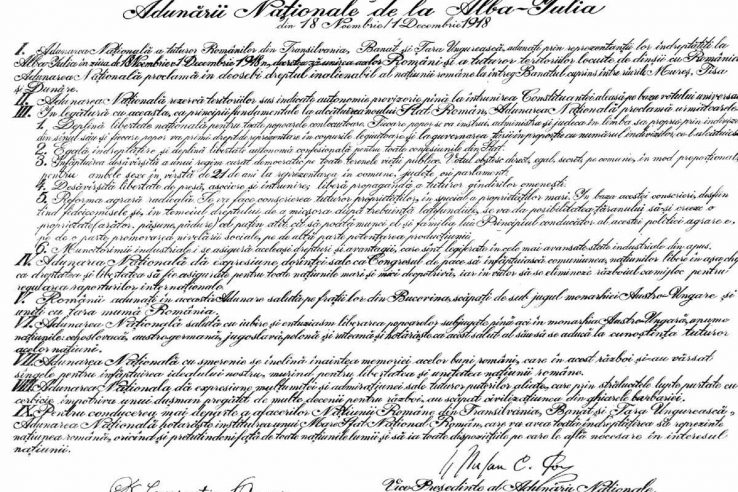 Adunării Naționale de la Alba-Iulia
din 18 Noembrie/1 Decembrie 1918
I. Adunarea Națională a tuturor Românilor din Transilvania, Banat și Țara Ungurească, adunați prin reprezentanții lor îndreptățiți la
Alba-Iulia în ziua de 18 Noembrie/1 Decembrie 1918, decretează unirea acelor Români și a tuturor teritoriilor locuite de dînșii cu România.
Adunarea Națională proclamă îndeosebi dreptul inalienabil al națiunii române la întreg Banatul cuprins între rîurile Mureș, Tisa
și Dunăre.
II. Adunarea Națională rezervă teritoriilor sus indicate autonomie provizorie pînă la întrunirea Constituantei aleasă pe baza votului universal.
III. În legătură cu aceasta, ca principii fundamentale la alcătuirea noului Stat Român, Adunarea Națională proclamă următoarele:
1. Deplină libertate națională pentru toate popoarele conlocuitoare. Fiecare popor se va instrui, administra și judeca în limba sa proprie prin indivizi
din sînul său și fiecare popor va primi drept de reprezentare în corpurile legiuitoare și la guvernarea țării în proporție cu numărul indivizilor ce-l alcătuiesc.
2. Egală îndreptățire și deplină libertate autonomă confesională pentru toate confesiunile din Stat.
3. Înfăptuirea desăvîrșită a unui regim curat democratic pe toate terenele vieții publice. Votul obștesc, direct, egal, secret, pe comune, în mod proporțional,
pentru ambele sexe în vîrstă de 21 de ani la reprezentarea în comune, județe ori parlament.
4. Desăvîrșită libertate de presă, asociere și întrunire, liberă propagandă a tuturor gîndurilor omenești.
5. Reforma agrară radicală. Se va face conscrierea tuturor proprietăților, în special a proprietăților mari. În baza acestei conscrieri, desființ
înd fedeicomisele și, în temeiul dreptului de a micșora după trebuință latifundiile, se va da posibilitatea țăranului să-și creeze o
proprietate (arător, pășune, pădure) cel puțin atît cît să poată munci el și familia lui. Principiul conducător al acestei politici agrare e,
pe de o parte promovarea nivelării sociale, pe de altă parte potențarea producțiunii.
6. Muncitorimii industriale i se asigură aceleași drepturi și avantagii, care sînt legiferate în cele mai avansate state industriale din apus.
IV. Adunarea Națională dă expresiune dorenței sale ca Congresul de pace să înfăptuiască comuniunea națiunilor libere în așa chip
ca dreptatea și libertatea să fie asigurate pentru toate națiunile mari și mici deopotrivă, iar în viitor să se elimineze războiul ca mijloc pentru
regularea raporturilor internaționale.
V. Românii adunați în această Adunare salută pe frații lor din Bucovina, scăpați de sub jugul monarhiei Austro-Ungare și
uniți cu țara mumă România.
VI. Adunarea Națională salută cu iubire și entuziasm liberarea popoarelor subjugate pînă aci în monarhia Austro-Ungară, anume
națiunile: cehoslovacă, austrogermană, jugoslavă, polonă și ruteană și hotărăște ca acest salut al său să se aducă la cunoștința tuturor
acelor națiuni.
VII. Adunarea Națională cu smerenie se închină înaintea memoriei acelor bravi români, care în acest război și-au vărsat
sîngele pentru înfăptuirea idealului nostru, murind pentru libertatea și unitatea națiunii române.
VIII. Adunarea Națională dă expresiune mulțumirei și admirațiunei sale tuturor puterilor aliate, care prin strălucitele lupte purtate cu
cerbicie împotriva unui dușman pregătit de multe decenii pentru război, au scăpat civilizațiunea din ghiarele barbariei.
IX. Pentru conducerea mai departe a afacerilor Națiunii Române din Transilvania, Banat și Țara Ungurească,
Adunarea Națională hotărăște instituirea unui Mare Sfat Național Român, care va avea toată îndreptățirea să reprezinte
națiunea română, oricînd și pretutindeni față de toate națiunile lumii și să ia toate dispozițiile pe care le află necesare în interesul
națiunii.
Vice Președinte al Adunării Naționale